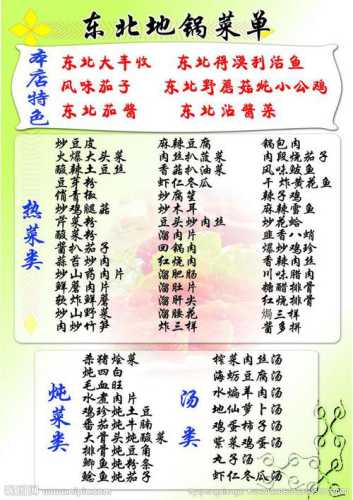 东北地锅菜单
本店特色
东北大丰收 东北得漠利活鱼
风味茄子 东北野蘑菇炖小公鸡
东北茄酱 东北沾酱菜
热菜类
炒豆皮
火爆大头菜
酸辣土豆丝
豆芽粉
俏青椒
炒鸡腿菇
芹菜粉
酸菜粉
酱扒茄子
蒜苔炒肉
炒山药肉片
炒鲜蘑
软炸鲜蘑
炒山野菜
肉炒竹笋
麻辣豆腐
肉丝扒菠菜
香菇扒油菜
虾仁冬瓜
炒腐笙
炒木耳
豆头炒肉丝
溜肉片
回锅肉
红烧肉
溜肥肠
溜肚片
溜肝尖
溜腰花
炸三样
锅包肉
肉段烧茄子
风味鲅鱼
干炸黄花鱼
辣子鸡
麻辣雷鱼
炒花蛤
韭香八蛸
爆炒鸡珍
香辣肉丝
川味腊肉
糖醋排骨
红烧排骨
焗三样
酱多拼
炖菜类
杀猪烩菜
炖四白
毛血旺
水煮肉片
鸡珍炖土豆
番茄炖牛腩
大骨头炖酸菜
排骨炖豆角
鲫鱼炖粉条
鲶鱼炖茄子
汤类
榨菜肉丝汤
海蛎豆腐汤
水煸羊肉汤
地仙萝卜汤
鸡蛋柿子汤
紫菜鸡蛋汤
丸子汤
虾仁冬瓜汤